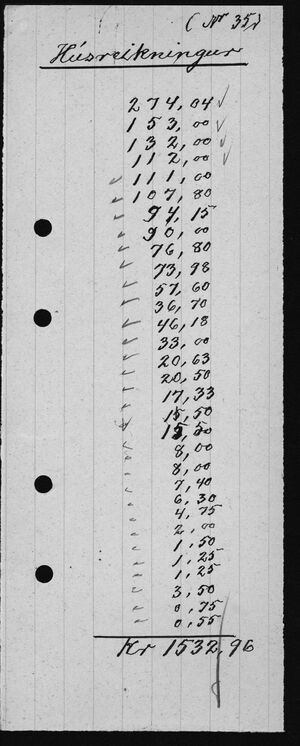 (Nr 35)
Húsreikningur
274,04
153,00
132,00
112,00
111,00
107,80
94,15
90,00
76,80
73,98
57,60
36,70
46,18
33,00
20,63
20,50
17,33
15,50
15,50
8,00
8,00
7,40
6,30
4,75
2,00
1,50
1,25
1,25
3,50
0,75
0,55
Kr 1532,96